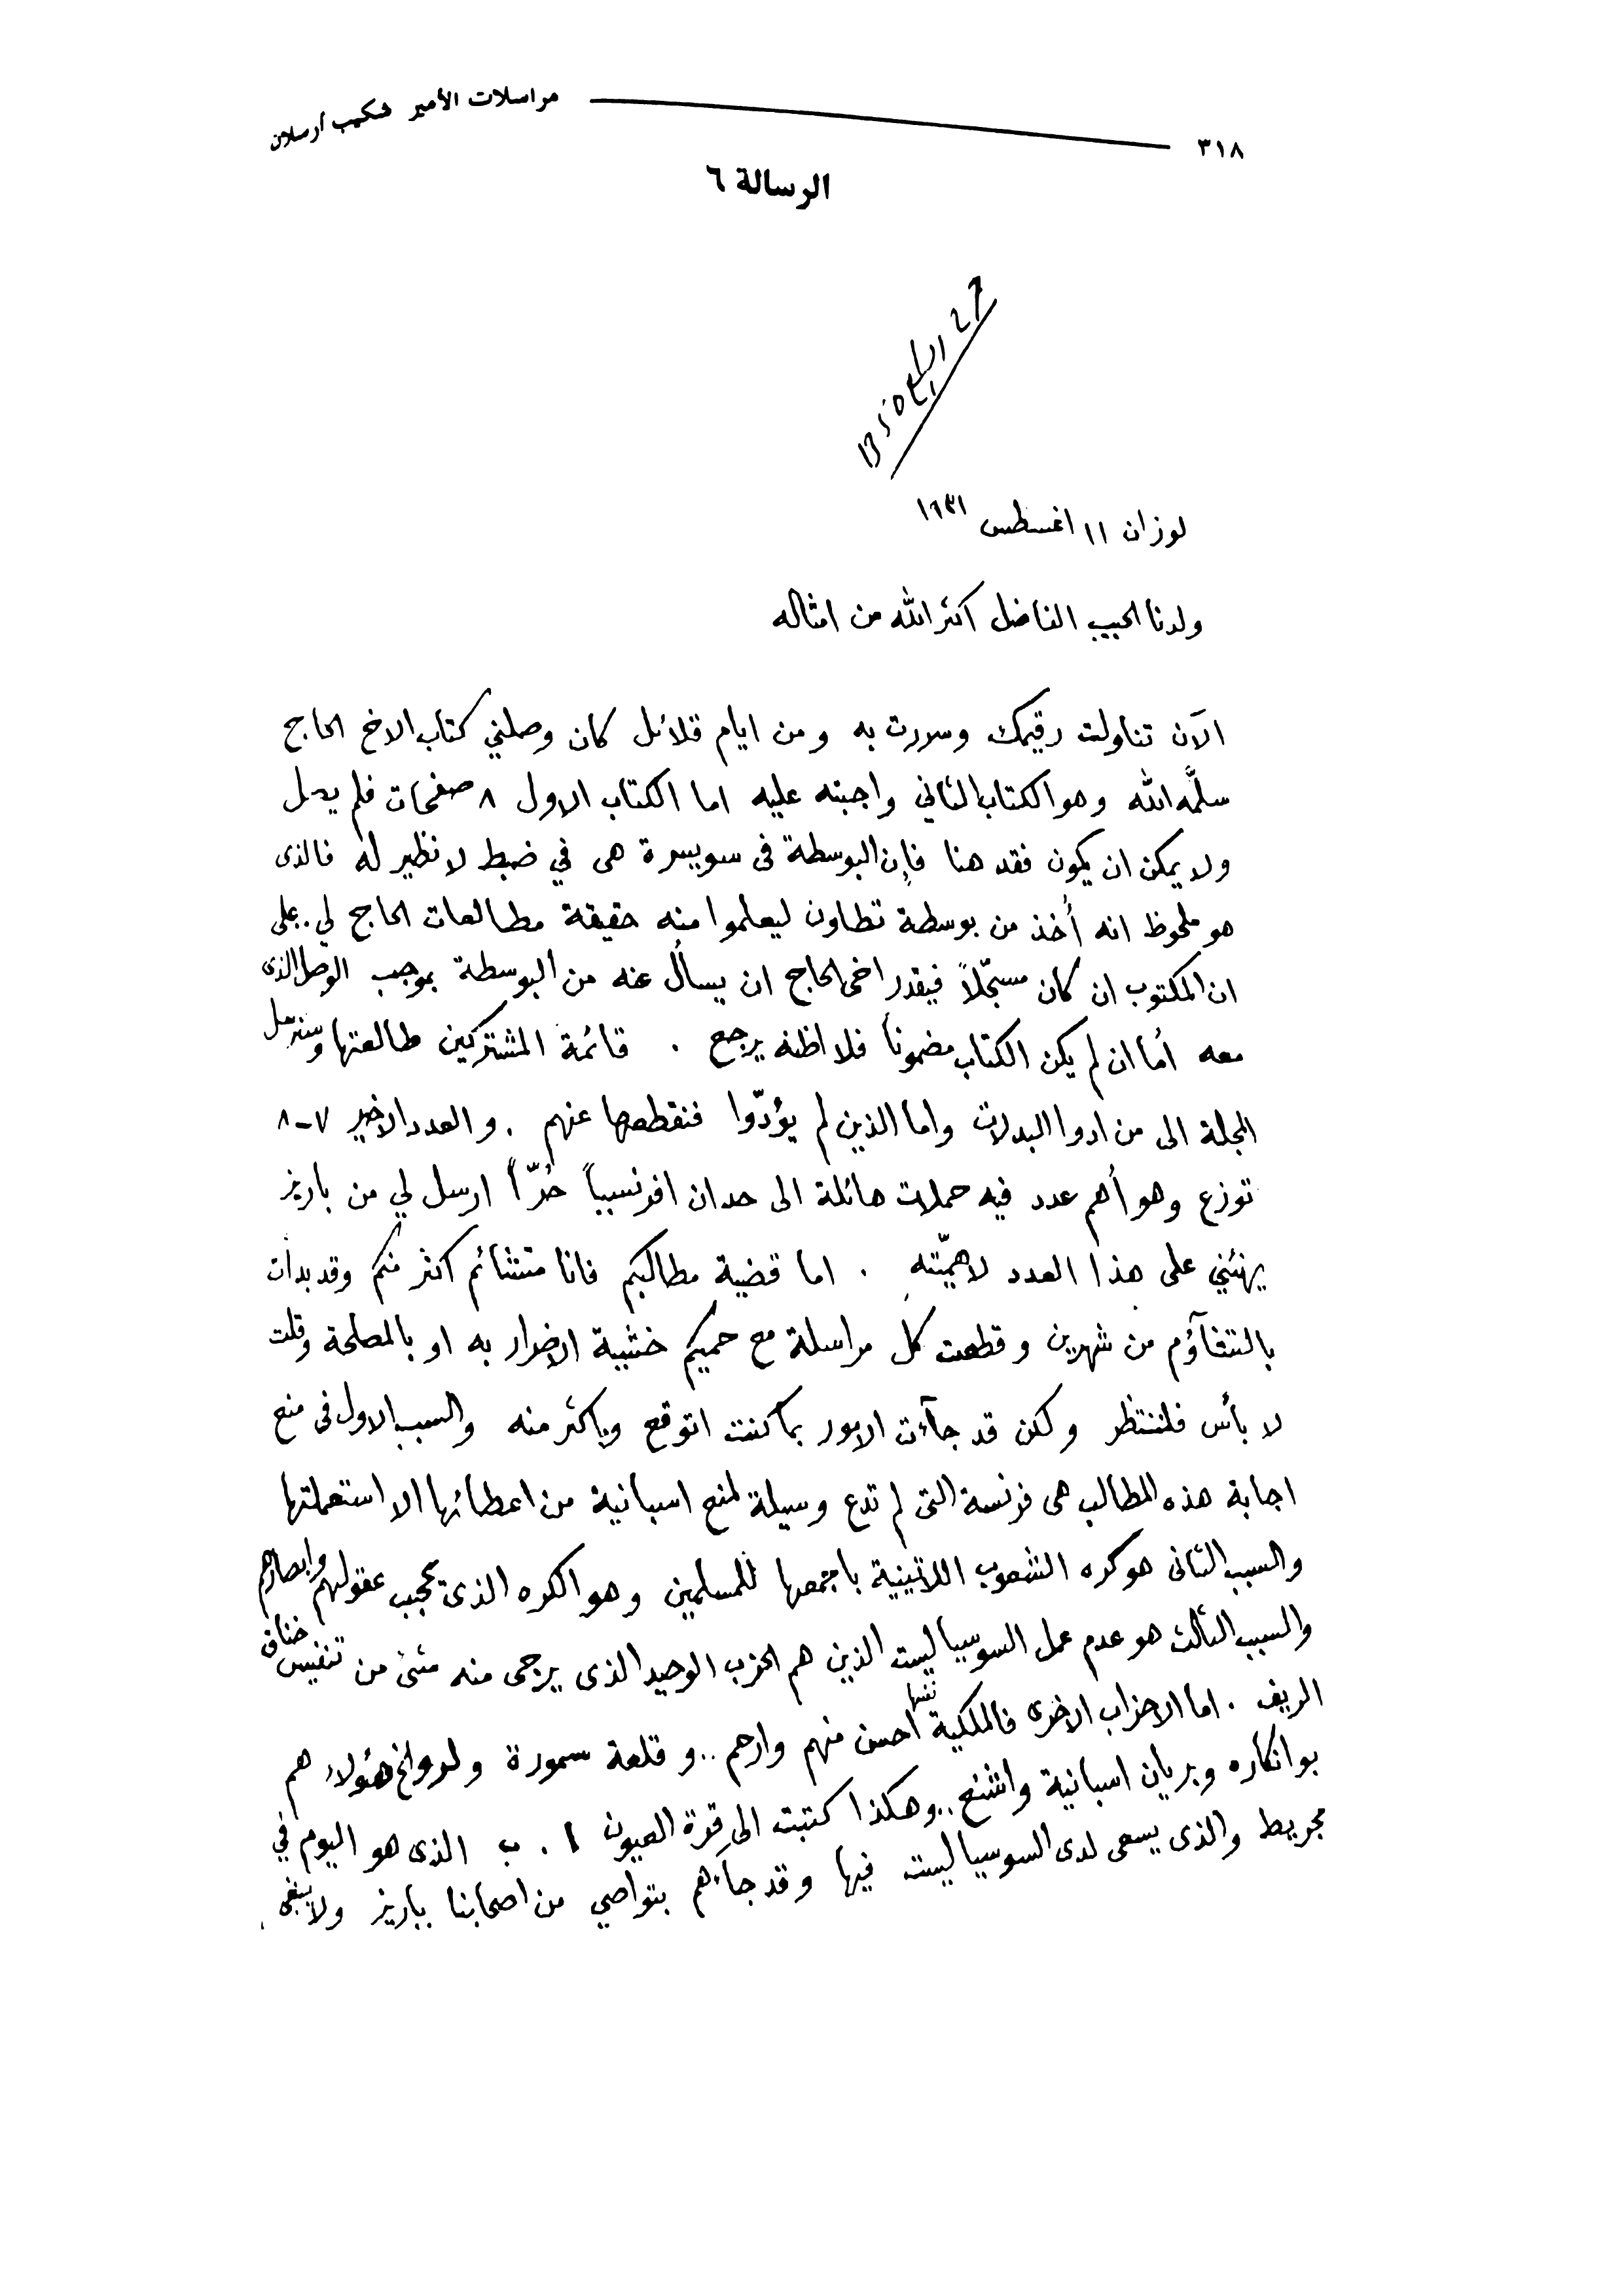 ٣١٨ مراسلات الأمير شكيب أرسلان
الرسالة ٦
27 ربيع
لوزان ١١ اغسطس ١٩٣١
ولدنا الحبيب الفاضل اكثر الله من امثاله
الآن تناولت رقيمك وسررت به ومن ايام قلائل كان وصلني كتاب الاخ الحاج
سلمَّه الله وهو الكتاب الثاني واجبته عليه اما الكتاب الاول ٨ صفحات فلم يصل
ولا يمكن ان يكون فقد هنا فإن البوسطة فى سويسرة هى في ضبط لا نظير له فالذى
هو ملحوظ انه أُخذ من بوسطة تطاون ليعلموا منه حقيقة مطالعات الحاج لي . على
ان المكتوب ان كان مسجّلاً فيقدر اخى الحاج ان يسأل عنه من البوسطة بموجب الوصل الذى
معه أما ان لم يكن الكتاب مضموناً فلا اظنه يرجع . قائمة المشتركين طالعتها وسنرسل
المجلة الى من ادوا البدلات واما الذين لم يؤدّوا فنقطعها عنهم . والعدد الاخير ٧-٨
توزع وهو أهم عدد فيه حملات هائلة الى حد ان افرنسيياً حُرّاً ارسل لي من باريز
يهنئني على هذا العدد لاهميّته . اما قضية مطالبكم فانا متشائم اكثر منكم وقد بدأت
بالتشاؤم من شهرين وقطعت كل مراسلة مع حميكم خشية الاضرار به او بالمصلحة وقلت
لا بأس فلننتظر ولكن قد جآءت الامور بما كنت اتوقع وباكثر منه والسبب الاول فى منع
اجابة هذه المطالب هى فرنسة التى لم تدع وسيلة لمنع اسبانية من اعطائها الا استعملتها
والسبب الثانى هو كره الشعوب اللاتينية باجمعها للمسلمين وهو الكره الذى يحجب عقولهم وابصارهم
والسبب الثالث هو عدم عمل السوسياليست الذين هم الحزب الوحيد الذى يرجى منه شئ من تنفيس خناق
الريف . اما الاحزاب الاخرى فالملكية نفسها احسن منهم وارحم .. و قلعة سمورة ولروا هؤلاء هم
بوانكاره وبريان اسبانية واشنع .. وهكذا كتبت الى قرة العيون ا . ب الذى هو اليوم في
مجريط والذى يسعى لدى السوسياليست فيها وقد جآءهم بتواصي من اصحابنا بباريز ولا